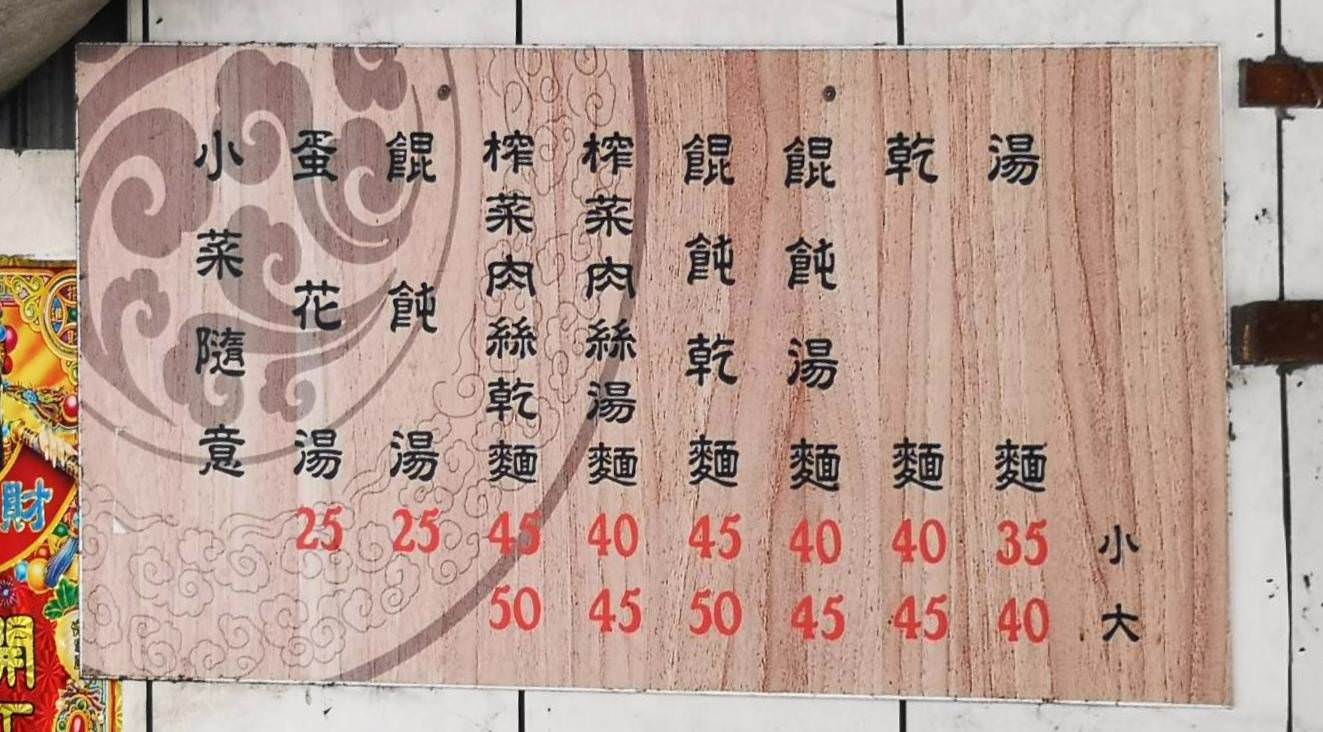 湯麵 35 40
乾麵 40 45
餛飩湯麵 40 45
餛飩乾麵 45 50
榨菜肉絲湯麵 40 45
榨菜肉絲乾麵 45 50
餛飩湯 25
蛋花湯 25
小菜隨意
小
大
財
開